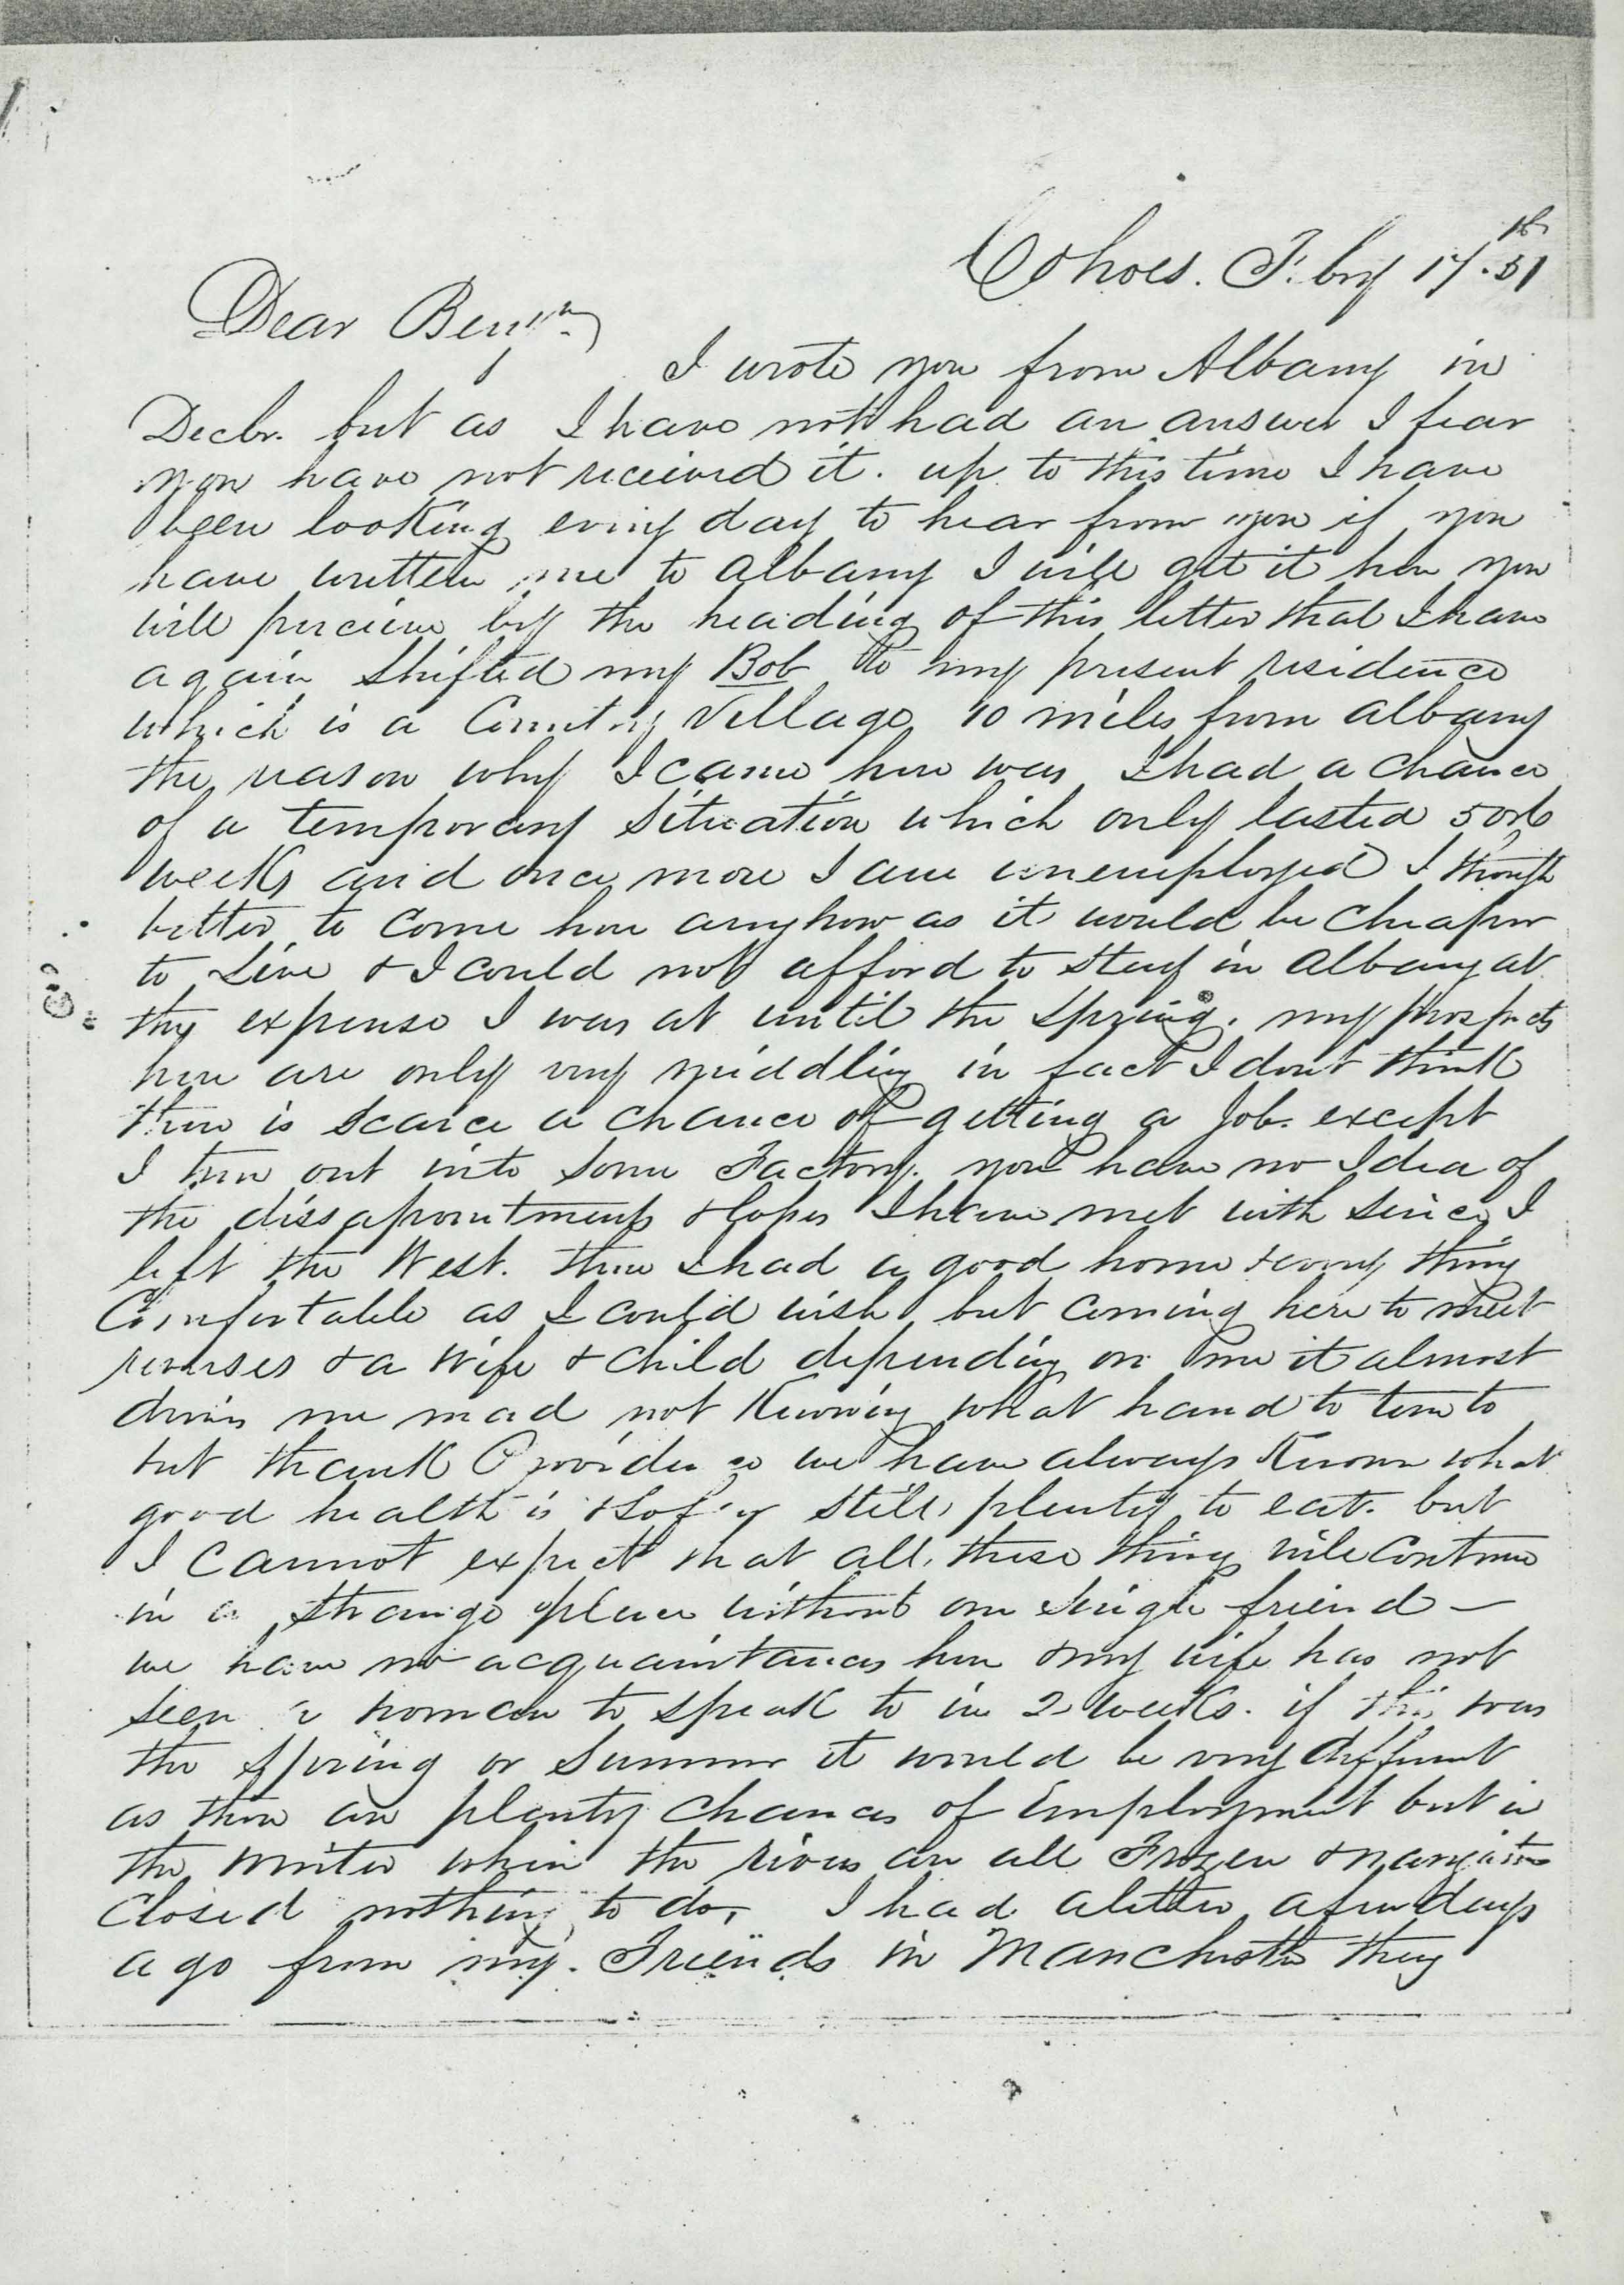 Cohoes. F.bry 17th. 51
Dear Benjn
I wrote you from Albany in
Decbr. but as I have not had an answer I fear
you have not received it. up to this time I have
been looking every day to hear from you if you
have written me to Albany I will get it here you
will percieve by the heading of this letter that I have
again shifted my Bob to my present residence
which is a Country Village 10 miles from Albany
the reason why I came here was I had a chance
of a temporary situation which only lasted 5 or 6
weeks and once more I am unemployed I thought
better to come here anyhow as it would be cheaper
to live & I could not afford to stay in Albany at
the expense I was at until the Spring. my prospects
here are only very middling in fact I dont think
there is scarce a chance of getting a Job. except
I turn out into some Factory. you have no Idea of
the dissapointments & loses I have met with since I
left the West. there I had a good home & every thing
Comfortable as I could wish but coming here to meet
reverses & a Wife & Child depending on me it almost
drives me mad not Knowing what hand to turn to
but thank Providence we have always Known what
good health is & so far still plenty to eat. but
I cannot expect that all these things will continue
in a strange place without one single friend —
we have no acquaintances here & my wife has not
seen a woman to speak to in 2 weeks. if this was
the Spring or Summer it would be very different
as there are plenty chances of Employment but in
the Winter when the rivers are all Frozen & navigation
Closed nothing to do. I had a letter a few days
ago from my Friends in Manchester they